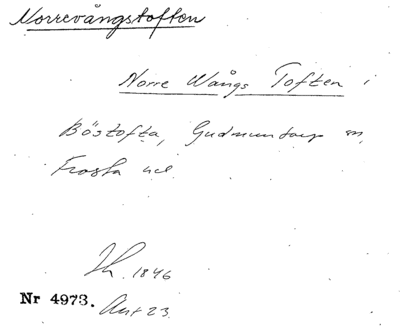 Norrevångstoften
Norre Wångs Toften i
Böstofta, Gudmuntorp sn,
Frosta hd.
1846
Nr 4973. Akt 23.